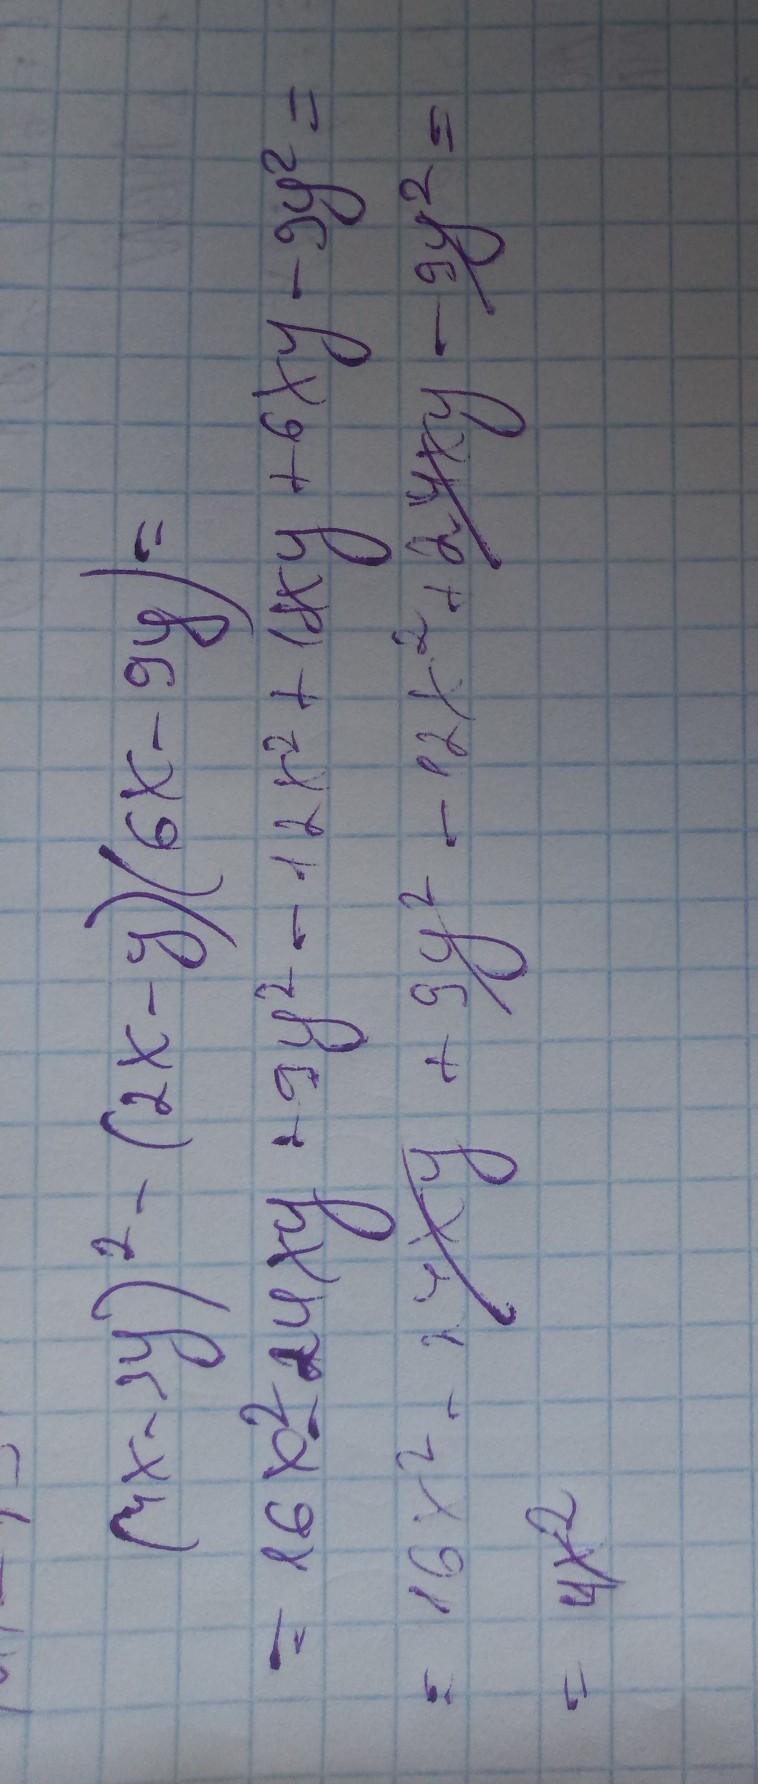 (4x-3y)²-(2x-y)(6x-9y)=
=16x²-24xy+9y²-12x²+18xy+6xy-9y²=
=16x²-24xy+9y²-12x²+24xy-9y²=
=4x²